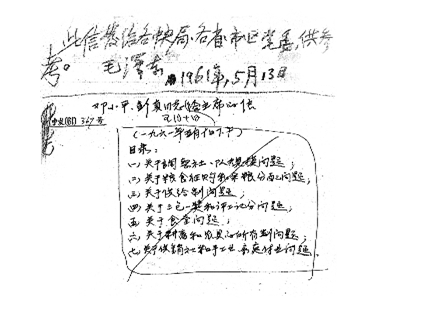 此信发给各中央局、各省市区党委,供参
考。
毛泽东
1961年5月13日
邓小平、彭真同志给主席的信
367号
(一九六一年五月十日下午)
目录:
(一)关于调整社、队规模问题;
(二)关于粮食征购和余粮分配问题;
(三)关于供给制问题;
(四)关于三包一奖和评工记分问题;
(五)关于食堂问题;
(六)关于耕畜和农具的所有制问题;
(七)关于供销社和手工业、家庭付业问题。